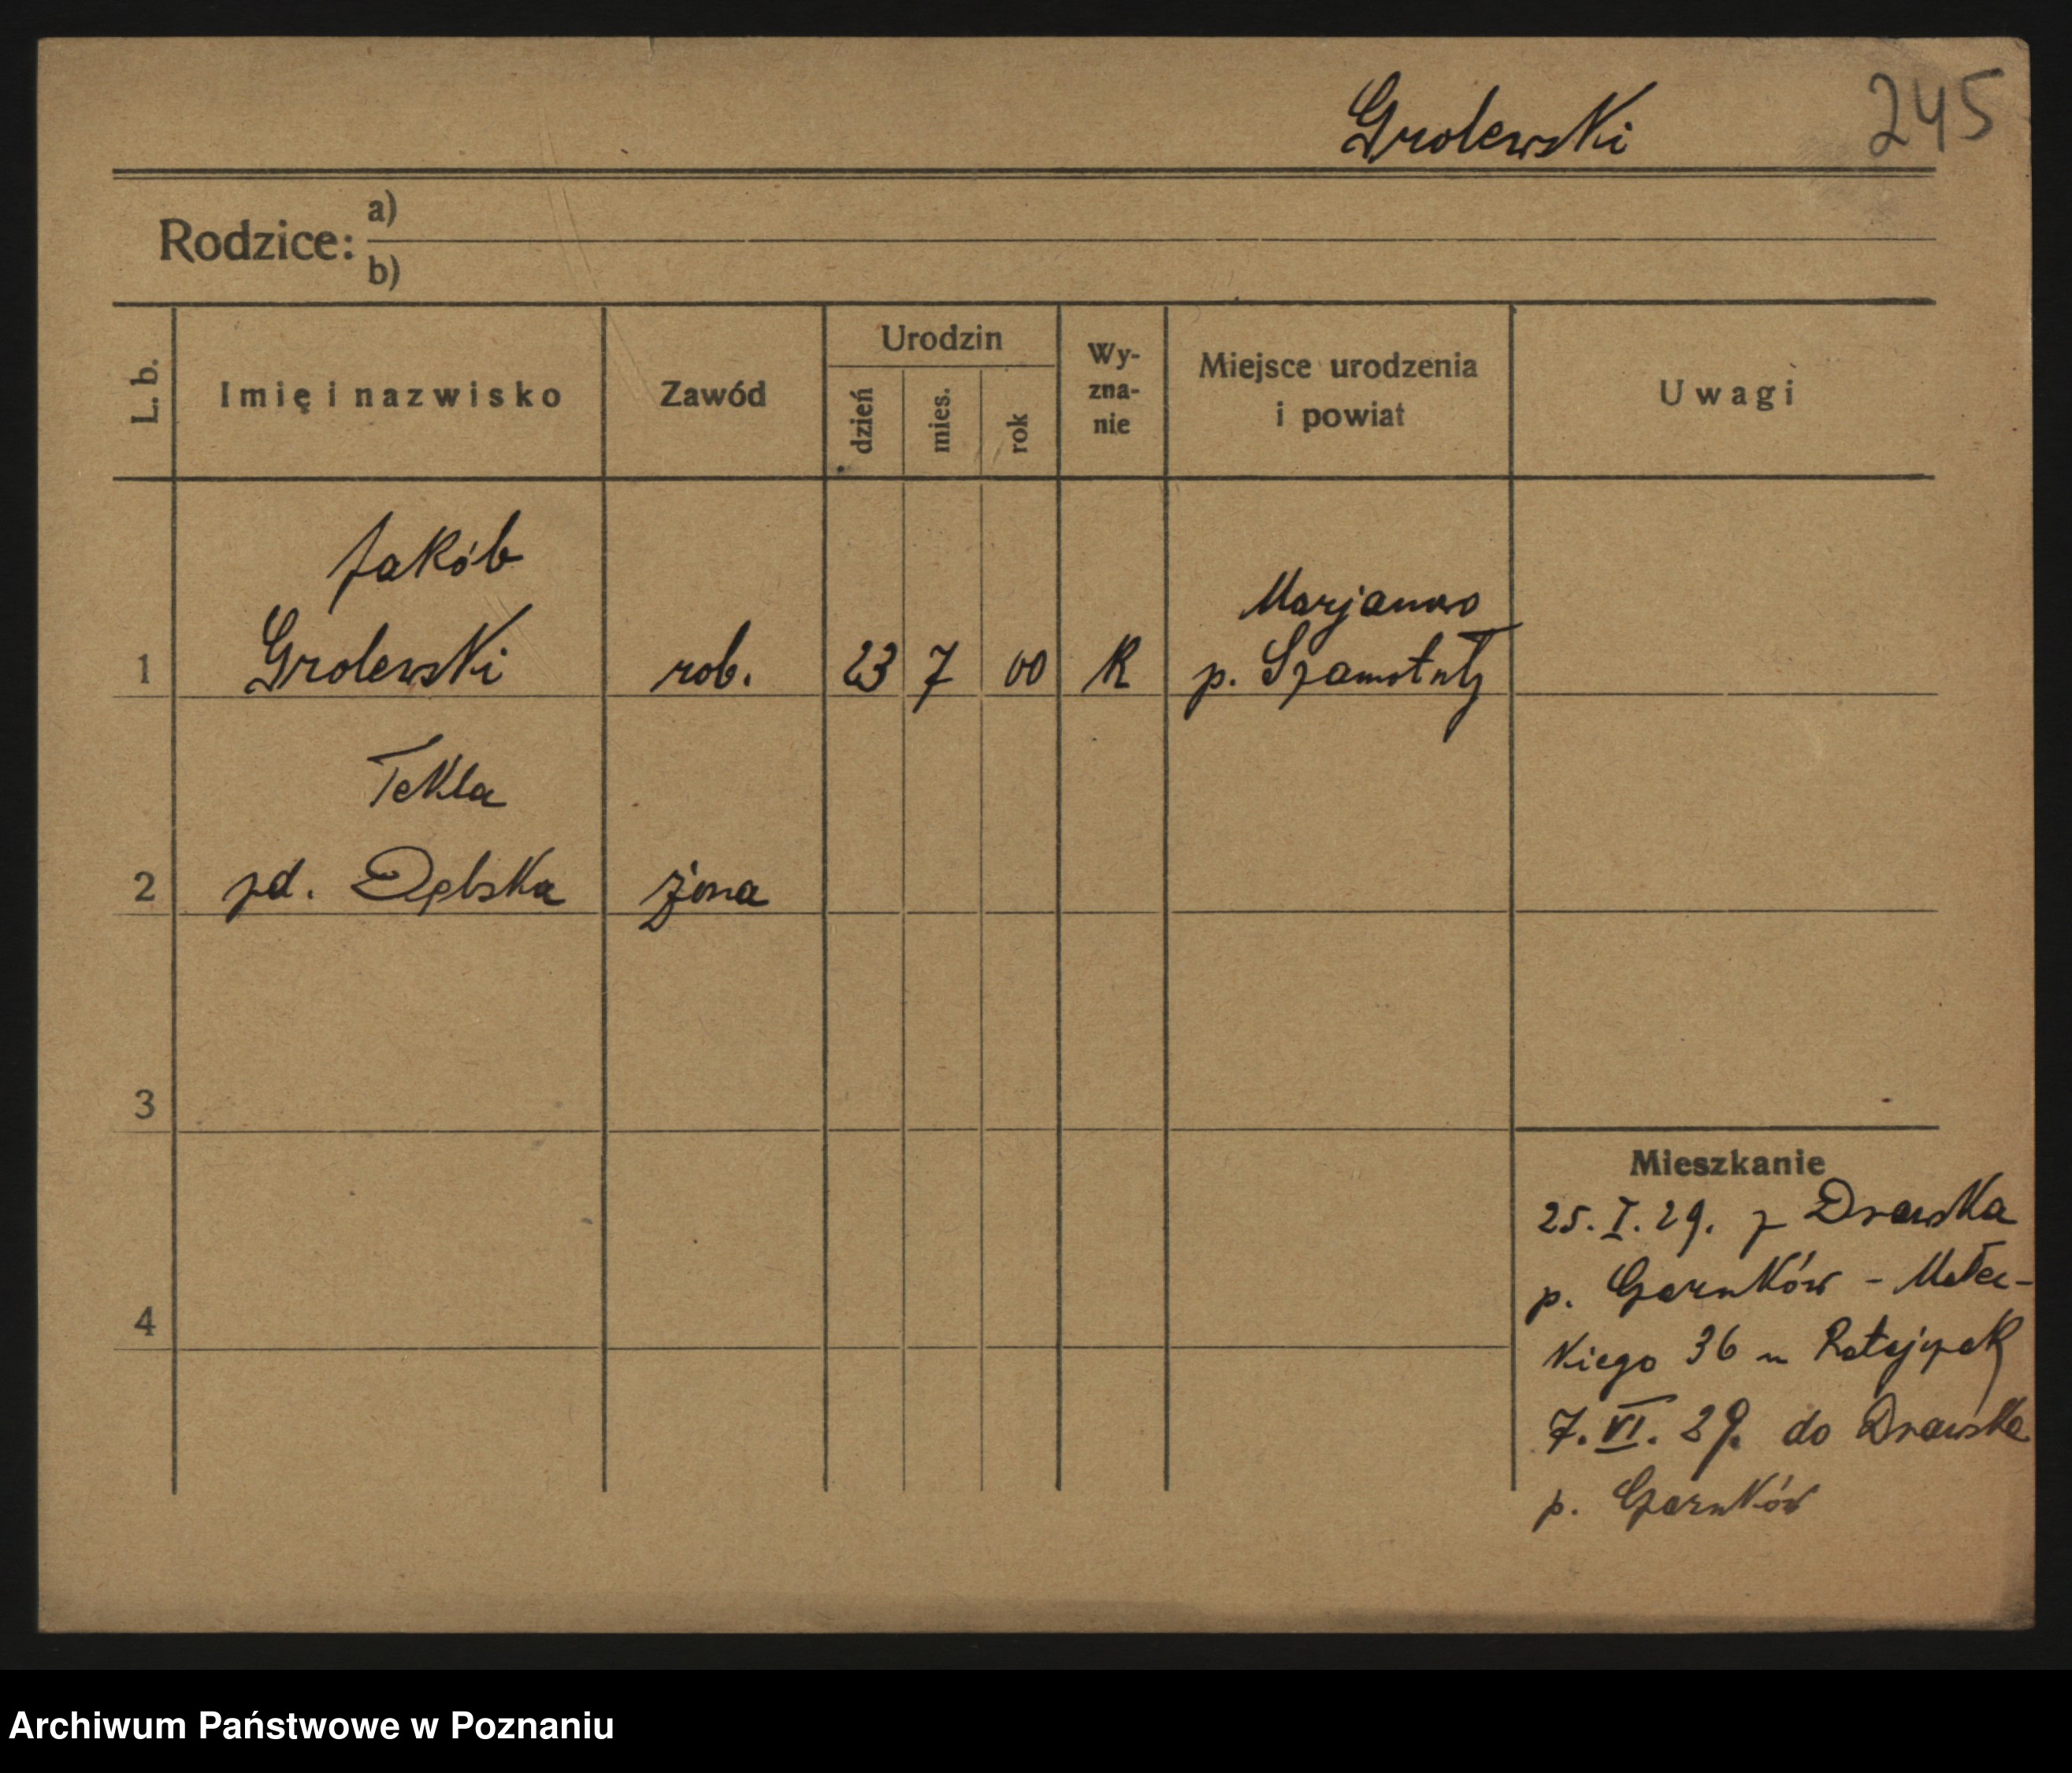 Grolewski 245
Rodzice: a)
b)
L. b. Imię i nazwisko Zawód Urodzin dzień mies. rok Wy-zna-nie Miejsce urodzenia i powiat Uwagi
Jakób
Marjanowo
1 Grolewski rob. 23 7 00 K p. Szamotuły
Tekla
2 zd. Dębska żona
3
Mieszkanie
25. I. 29. z Drawska
p. Czarnków - Małec-
4
kiego 36 u Ratajczak
7. VI. 29. do Drawska
p. Czarnków
Archiwum Państwowe w Poznaniu